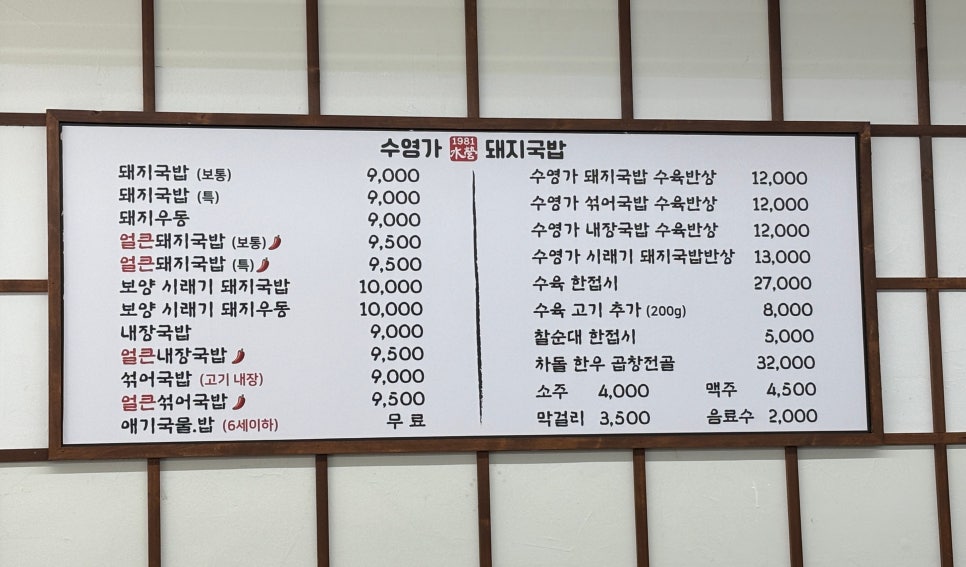 수영가 1981 水營 돼지국밥
돼지국밥 (보통) 9,000
돼지국밥 (특) 9,000
돼지우동 9,000
얼큰돼지국밥 (보통) 9,500
얼큰돼지국밥 (특) 9,500
보양 시래기 돼지국밥 10,000
보양 시래기 돼지우동 10,000
내장국밥 9,000
얼큰내장국밥 9,500
섞어국밥 (고기 내장) 9,000
얼큰섞어국밥 9,500
애기국물.밥 (6세이하) 무료
수영가 돼지국밥 수육반상 12,000
수영가 섞어국밥 수육반상 12,000
수영가 내장국밥 수육반상 12,000
수영가 시래기 돼지국밥반상 13,000
수육 한접시 27,000
수육 고기 추가 (200g) 8,000
찰순대 한접시 5,000
차돌 한우 곱창전골 32,000
소주 4,000 맥주 4,500
막걸리 3,500 음료수 2,000